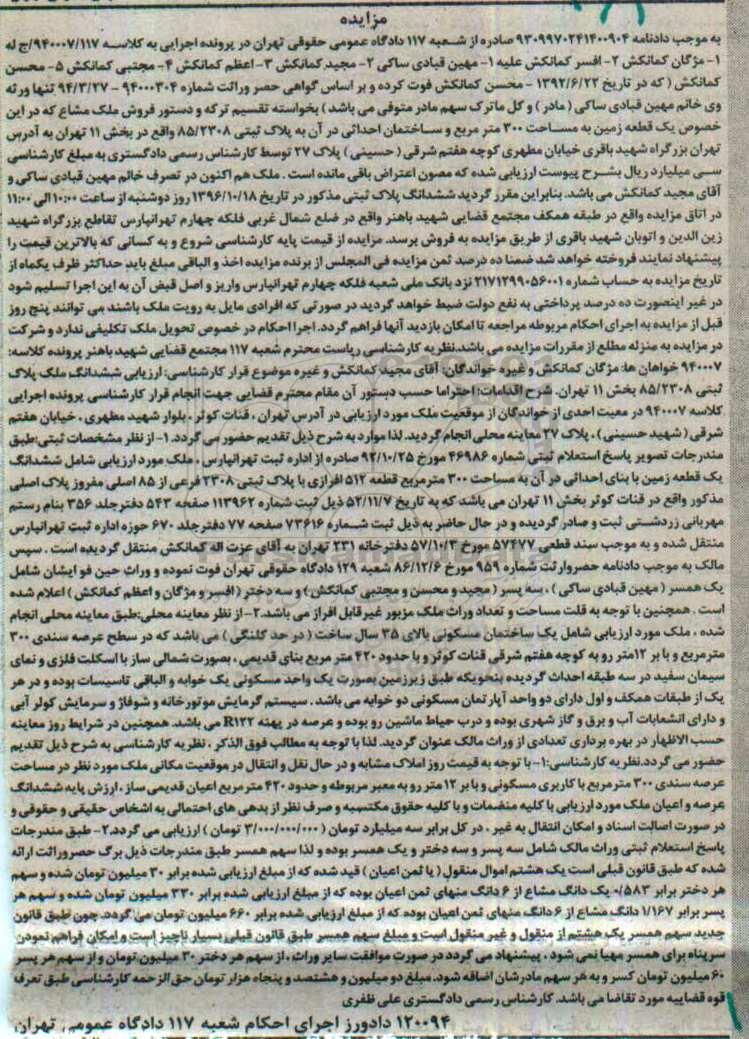 مزایده
به موجب دادنامه ۹۳۰۹۹۷۰۲۴۱۴۰۰۹۰۴ صادره از شعبه ۱۱۷ دادگاه عمومی حقوقی تهران در پرونده اجرایی به کلاسه ۹۴۰۰۰۷/۱۱۷/ج له
۱- مژگان کمانکش ۲- افسر کمانکش علیه ۱- مهین قبادی ساکی ۲- مجید کمانکش ۳- اعظم کمانکش ۴- مجتبی کمانکش ۵- محسن
کمانکش ( که در تاریخ ۱۳۹۲/۶/۲۲ - محسن کمانکش فوت کرده و بر اساس گواهی حصر وراثت شماره ۹۴۰۰۰۳۰۴ - ۹۴/۳/۲۷ تنها ورثه
وی خانم مهین قبادی ساکی ( مادر ) و کل ماترک سهم مادر متوفی می باشد ) بخواسته تقسیم ترکه و دستور فروش ملک مشاع که در این
خصوص یک قطعه زمین به مساحت ۳۰۰ متر مربع و ساختمان احداثی در آن به پلاک ثبتی ۸۵/۲۳۰۸ واقع در بخش ۱۱ تهران به آدرس
تهران بزرگراه شهید باقری خیابان مطهری کوچه هفتم شرقی ( حسینی ) پلاک ۲۷ توسط کارشناس رسمی دادگستری به مبلغ کارشناسی
سی میلیارد ریال بشرح پیوست ارزیابی شده که مصون اعتراض باقی مانده است . ملک هم اکنون در تصرف خانم مهین قبادی ساکی و
آقای مجید کمانکش می باشد. بنابراین مقرر گردید ششدانگ پلاک ثبتی مذکور در تاریخ ۱۳۹۶/۱۰/۱۸ روز دوشنبه از ساعت ۱۰:۰۰ الی ۱۱:۰۰
در اتاق مزایده واقع در طبقه همکف مجتمع قضایی شهید باهنر واقع در ضلع شمال غربی فلکه چهارم تهرانپارس تقاطع بزرگراه شهید
زین الدین و اتوبان شهید باقری از طریق مزایده به فروش برسد. مزایده از قیمت پایه کارشناسی شروع و به کسانی که بالاترین قیمت را
پیشنهاد نمایند فروخته خواهد شد ضمنا ده درصد ثمن مزایده فی المجلس از برنده مزایده اخذ و الباقی مبلغ باید حداکثر ظرف یکماه از
تاریخ مزایده به حساب شماره ۲۱۷۱۲۹۹۰۵۶۰۰۱ نزد بانک ملی شعبه فلکه چهارم تهرانپارس واریز و اصل قبض آن به این اجرا تسلیم شود
در غیر اینصورت ده درصد پرداختی به نفع دولت ضبط خواهد گردید در صورتی که افرادی مایل به رویت ملک باشند می توانند پنج روز
قبل از مزایده به اجرای احکام مربوطه مراجعه تا امکان بازدید آنها فراهم گردد. اجرا احکام در خصوص تحویل ملک تکلیفی ندارد و شرکت
در مزایده به منزله مطلع از مقررات مزایده می باشد.نظریه کارشناسی ریاست محترم شعبه ۱۱۷ مجتمع قضایی شهید باهنر پرونده کلاسه:
۹۴۰۰۰۷ خواهان ها: مژگان کمانکش و غیره خواندگان: آقای مجید کمانکش و غیره موضوع قرار کارشناسی: ارزیابی ششدانگ ملک پلاک
ثبتی ۸۵/۲۳۰۸ بخش ۱۱ تهران. شرح اقدامات: احتراما حسب دستور آن مقام محترم قضایی جهت انجام قرار کارشناسی پرونده اجرایی
کلاسه ۹۴۰۰۰۷ در معیت احدی از خواندگان از موقعیت ملک مورد ارزیابی در آدرس تهران ، قنات کوثر ، بلوار شهید مطهری ، خیابان هفتم
شرقی ( شهید حسینی ) ، پلاک ۲۷ معاینه محلی انجام گردید. لذا موارد به شرح ذیل تقدیم حضور می گردد. ۱- از نظر مشخصات ثبتی:طبق
مندرجات تصویر پاسخ استعلام ثبتی شماره ۴۶۹۸۶ مورخ ۹۲/۱۰/۲۵ صادره از اداره ثبت تهرانپارس ، ملک مورد ارزیابی شامل ششدانگ
یک قطعه زمین با بنای احداثی در آن به مساحت ۳۰۰ مترمربع قطعه ۵۱۲ افرازی با پلاک ثبتی ۲۳۰۸ فرعی از ۸۵ اصلی مفروز پلاک اصلی
مذکور واقع در قنات کوثر بخش ۱۱ تهران می باشد که به تاریخ ۵۲/۱۱/۷ ذیل ثبت شماره ۱۱۳۹۶۲ صفحه ۵۴۳ دفترجلد ۳۵۶ بنام رستم
مهربانی زردشتی ثبت و صادر گردیده و در حال حاضر به ذیل ثبت شماره ۷۳۶۱۶ صفحه ۷۷ دفترجلد ۶۷۰ حوزه اداره ثبت تهرانپارس
منتقل شده و به موجب سند قطعی ۵۷۴۷۷ مورخ ۵۷/۱۰/۳ دفترخانه ۲۳۱ تهران به آقای عزت اله کمانکش منتقل گردیده است . سپس
مالک به موجب دادنامه حصروارثت شماره ۹۵۹ مورخ ۸۶/۱۲/۶ شعبه ۱۲۹ دادگاه حقوقی تهران فوت نموده و وراث حین فو ایشان شامل
یک همسر ( مهین قبادی ساکی ) ، سه پسر ( مجید و محسن و مجتبی کمانکش ) و سه دختر ( افسر و مژگان و اعظم کمانکش ) اعلام شده
است . همچنین با توجه به قلت مساحت و تعداد وراث ملک مزبور غیرقابل افراز می باشد.۲- از نظر معاینه محلی:طبق معاینه محلی انجام
شده ، ملک مورد ارزیابی شامل یک ساختمان مسکونی بالای ۳۵ سال ساخت ( در حد کلنگی ) می باشد که در سطح عرصه سندی ۳۰۰
مترمربع و با بر ۱۲متر رو به کوچه هفتم شرقی قنات کوثر و با حدود ۴۲۰ متر مربع بنای قدیمی ، بصورت شمالی ساز با اسکلت فلزی و نمای
سیمان سفید در سه طبقه احداث گردیده بنحویکه طبق زیرزمین بصورت یک واحد مسکونی یک خوابه و الباقی تاسیسات بوده و در هر
یک از طبقات همکف و اول دارای دو واحد آپارتمان مسکونی دو خوابه می باشد . سیستم گرمایش موتورخانه و شوفاژ و سرمایش کولر آبی
و دارای انشعابات آب و برق و گاز شهری بوده و درب حیاط ماشین رو بوده و عرصه در پهنه R۱۲۲ می باشد. همچنین در شرایط روز معاینه
حسب الاظهار در بهره برداری تعدادی از وراث مالک عنوان گردید. لذا با توجه به مطالب فوق الذکر ، نظریه کارشناسی به شرح ذیل تقدیم
حضور می گردد.نظریه کارشناسی:۱- با توجه به قیمت روز املاک مشابه و در حال نقل و انتقال در موقعیت مکانی ملک مورد نظر در مساحت
عرصه سندی ۳۰۰ مترمربع با کاربری مسکونی و با بر ۱۲ متر رو به معبر مربوطه و حدود ۴۲۰ مترمربع اعیان قدیمی ساز ، ارزش پایه ششدانگ
عرصه و اعیان ملک مورد ارزیابی با کلیه منضمات و با کلیه حقوق مکتسبه و صرف نظر از بدهی های احتمالی به اشخاص حقیقی و حقوقی و
در صورت اصالت اسناد و امکان انتقال به غیر ، در کل برابر سه میلیارد تومان ( ۳/۰۰۰/۰۰۰/۰۰۰ تومان ) ارزیابی می گردد.۲- طبق مندرجات
پاسخ استعلام ثبتی وراث مالک شامل سه پسر و سه دختر و یک همسر بوده و لذا سهم همسر طبق مندرجات ذیل برگ حصروراثت ارائه
شده که طبق قانون قبلی است یک هشتم اموال منقول ( یا ثمن اعیان ) قید شده که از مبلغ ارزیابی شده برابر ۳۰ میلیون تومان شده و سهم
هر دختر برابر ۰/۵۸۳ یک دانگ مشاع از ۶ دانگ منهای ثمن اعیان بوده که از مبلغ ارزیابی شده برابر ۳۳۰ میلیون تومان شده و سهم هر
پسر برابر ۱/۱۶۷ دانگ مشاع از ۶ دانگ منهای ثمن اعیان بوده که از مبلغ ارزیابی شده برابر ۶۶۰ میلیون تومان می گردد. چون طبق قانون
جدید سهم همسر یک هشتم از منقول و غیر منقول است و مبلغ سهم همسر طبق قانون قبلی بسیار ناچیز است و امکان فراهم نمودن
سرپناه برای همسر مهیا نمی شود ، پیشنهاد می گردد در صورت موافقت سایر وراث ، از سهم هر دختر ۳۰ میلیون تومان و از سهم هر پسر
۶۰ میلیون تومان کسر و به هر سهم مادرشان اضافه شود. مبلغ دو میلیون و هشتصد و پنجاه هزار تومان حق الزحمه کارشناسی طبق تعرفه
قوه قضاییه مورد تقاضا می باشد. کارشناس رسمی دادگستری علی ظفری
۱۲۰۰۹۴ دادورز اجرای احکام شعبه ۱۱۷ دادگاه عمومی تهران